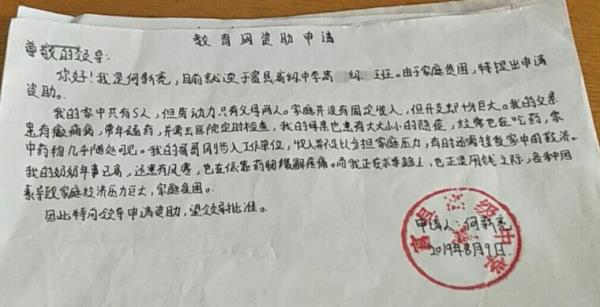 教育网资助申请
尊敬的领导:
你好!我是何新亮,目前就读于富县高级中学高 级 班。由于家庭贫困,特提出申请
资助。
我的家中共有5人,但劳动力只有父母两人。家庭并没有固定收入,但开支却十分巨大。我的父亲
患有癫痫病,常年通药,并需去医院定时检查,我的母亲也患有大大小小的隐症,经常也在吃药,家
中药物几乎随处可见。我的哥哥刚步入工作单位,收入并不足以分担家庭压力,有时还需接受家中的救济。
我的奶奶年事已高,还患有风寒,也在依靠药物缓解疼痛。而我正在求学路上,也正是用钱之际,各种因
素导致家庭经济压力巨大,家庭贫困。
因此特向领导申请资助,望领导批准。
申请人:何新亮
2019年8月9日
富县 级中学